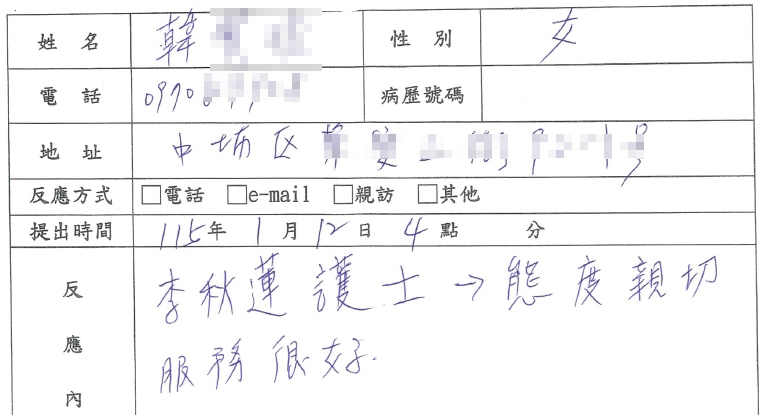 姓 名 韓 性 別 女
電 話 0970 病歷號碼
地 址 中埔区
反應方式 □電話 □e-mail □親訪 □其他
提出時間 115年 1月 12日 4點 分
反應內 李秋蓮護士→態度親切
服務很好.